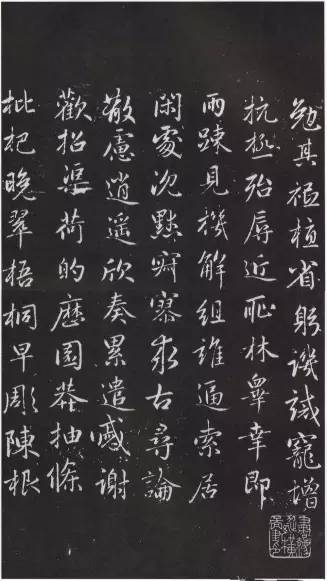 勉其祗植省躬譏誡寵增
抗極殆辱近恥林皋幸即
兩踈見機解組誰逼索居
閑處沈默寂寥求古尋論
散慮逍遙欣奏累遣慼謝
歡招渠荷的歷園莽抽條
枇杷晚翠梧桐早彫陳根